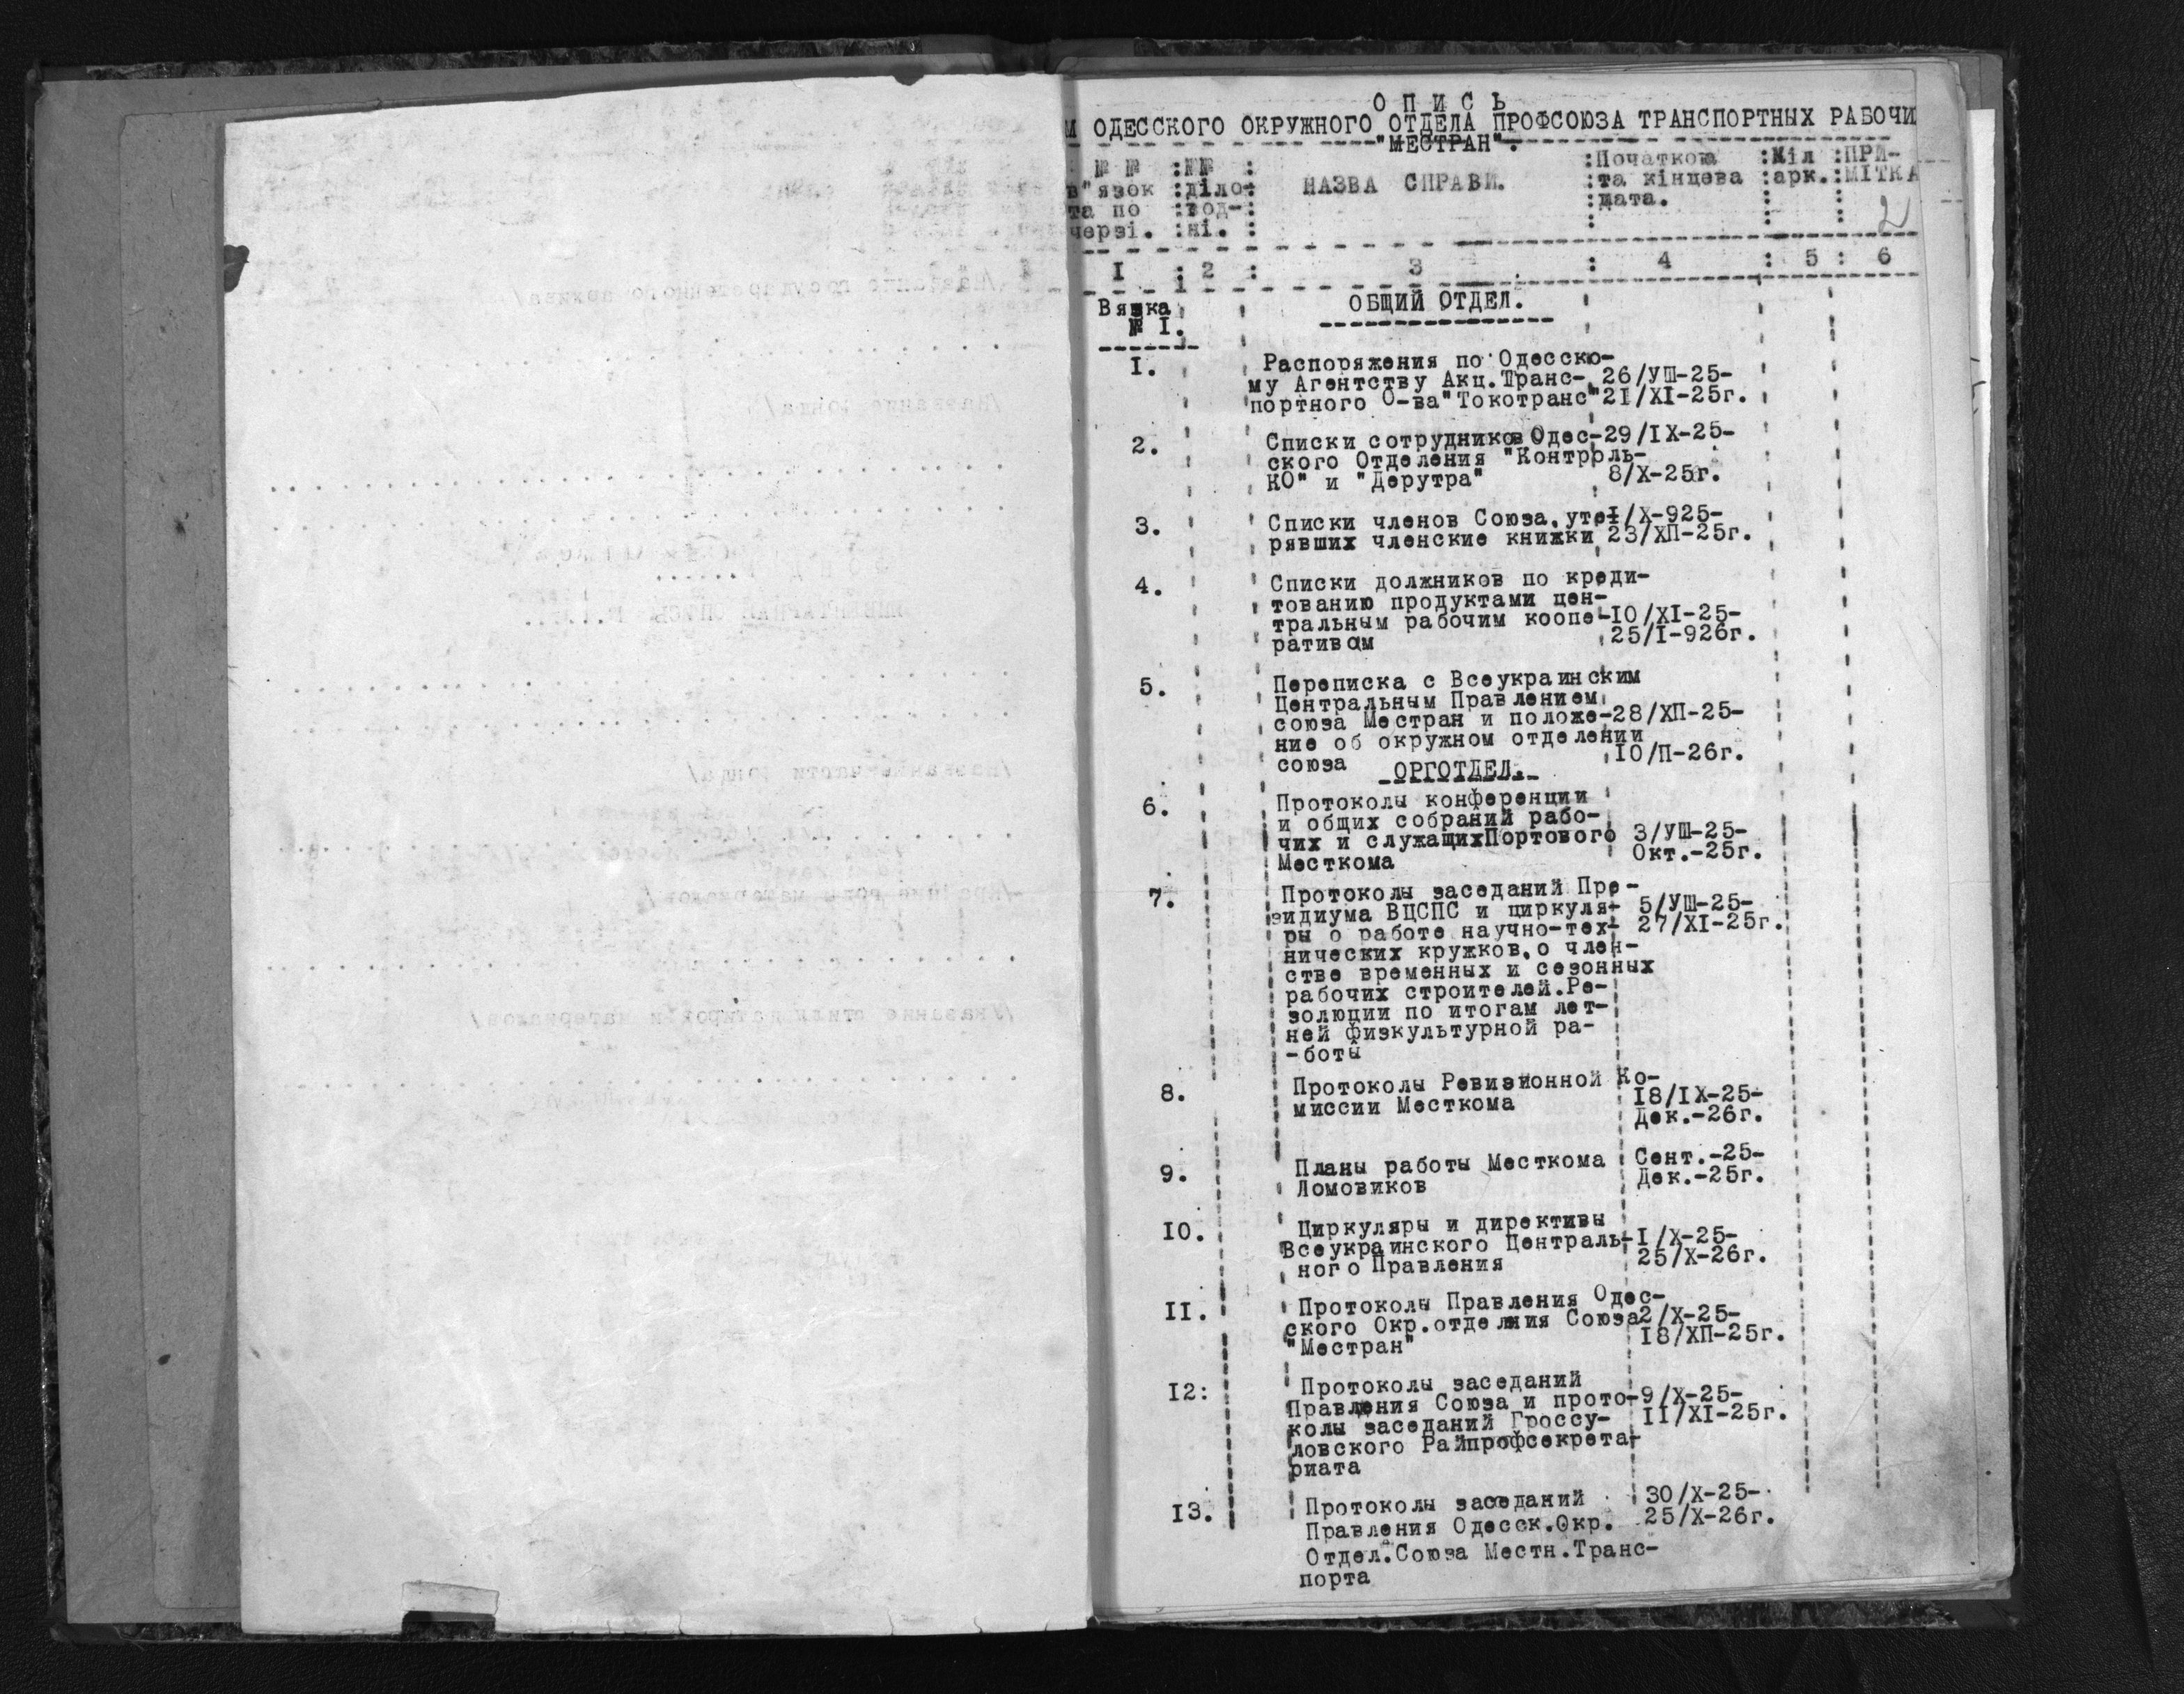 О П И С Ь
И ОДЕССКОГО ОКРУЖНОГО ОТДЕЛА ПРОФСОЮЗА ТРАНСПОРТНЫХ РАБОЧИ
"МЕСТРАН".
№ № :№№ : НАЗВА СПРАВИ. :Початкова :Кіл :ПРИ-
в"язок :діло- :та кінцева :арк.:МІТКА
та по :вод-: :дата. : :
черзі. :ні. : 2
I : 2 : 3 : 4 : 5 : 6
Вязка ОБЩИЙ ОТДЕЛ.
№ I.
I. Распоряжения по Одесско-
му Агентству Акц.Транс- 26/УШ-25-
портного О-ва"Токотранс" 21/XI-25г.
2. Списки сотрудников Одес- 29/IX-25-
ского Отделения "Контроль-
КО" и "Дерутра" 8/X-25г.
3. Списки членов Союза,уте- I/X-925-
рявших членские книжки 23/ХП-25г.
4. Списки должников по креди-
тованию продуктами цен-
тральным рабочим коопе- IO/XI-25-
ративом 25/I-926г.
5. Переписка с Всеукраинским
Центральным Правлением
союза Местран и положе- 28/ХП-25-
ние об окружном отделении
союза IO/П-26г.
ОРГОТДЕЛ.
6. Протоколы конференции
и общих собраний рабо-
чих и служащихПортового 3/УШ-25-
Месткома Окт.-25г.
7. Протоколы заседаний Пре-
зидиума ВЦСПС и циркуля- 5/УШ-25-
ры о работе научно-тех- 27/XI-25г.
нических кружков,о член-
стве временных и сезонных
рабочих строителей.Ре-
золюции по итогам лет-
ней физкультурной ра-
-боты
8. Протоколы Ревизионной Ко-
миссии Месткома I8/IX-25-
Дек.-26г.
9. Планы работы Месткома Сент.-25-
Ломовиков Дек.-25г.
IO. Циркуляры и директивы
Всеукраинского Централь- I/X-25-
ного Правления 25/X-26г.
II. Протоколы Правления Одес-
ского Окр.отделния Союза 2/X-25-
"Местран" I8/ХП-25г.
I2: Протоколы заседаний
Правления Союза и прото- 9/X-25-
колы заседаний Гроссу- II/XI-25г.
ловского Райпрофсекрета-
риата
I3. Протоколы заседаний 30/X-25-
Правления Одесск.Окр. 25/X-26г.
Отдел.Союза Местн.Транс-
порта